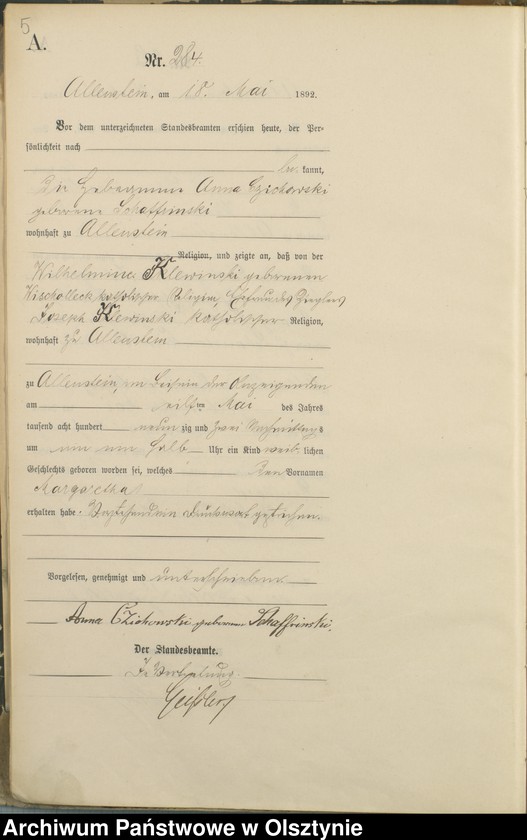 5
A.
Nr. 284.
Allenstein, am 18. Mai 1892.
Vor dem unterzeichneten Standesbeamten erschien heute, der Per-
sönlichkeit nach
be kannt,
die Hebeamme Anna Czichowski
geborene Schaffrinski
wohnhaft zu Allenstein
Religion, und zeigte an, daß von der
Wilhelmine Klewinski geborenen
katholischer Religion, Ehefrau des Zieglers
Joseph Klewinski katholischer Religion,
wohnhaft zu Allenstein
zu Allenstein, im Beisein der Anzeigenden
am eilften Mai des Jahres
tausend acht hundert neun zig und zwei Nachmittags
um ein halb Uhr ein Kind weib lichen
Geschlechts geboren worden sei, welches den Vornamen
Margaretha
erhalten habe. Vorstehend ein Druckwort gestrichen.
Vorgelesen, genehmigt und unterschrieben
Anna Czichowski geborene Schaffrinski.
Der Standesbeamte.
In Vertretung.
Archiwum Państwowe w Olsztynie